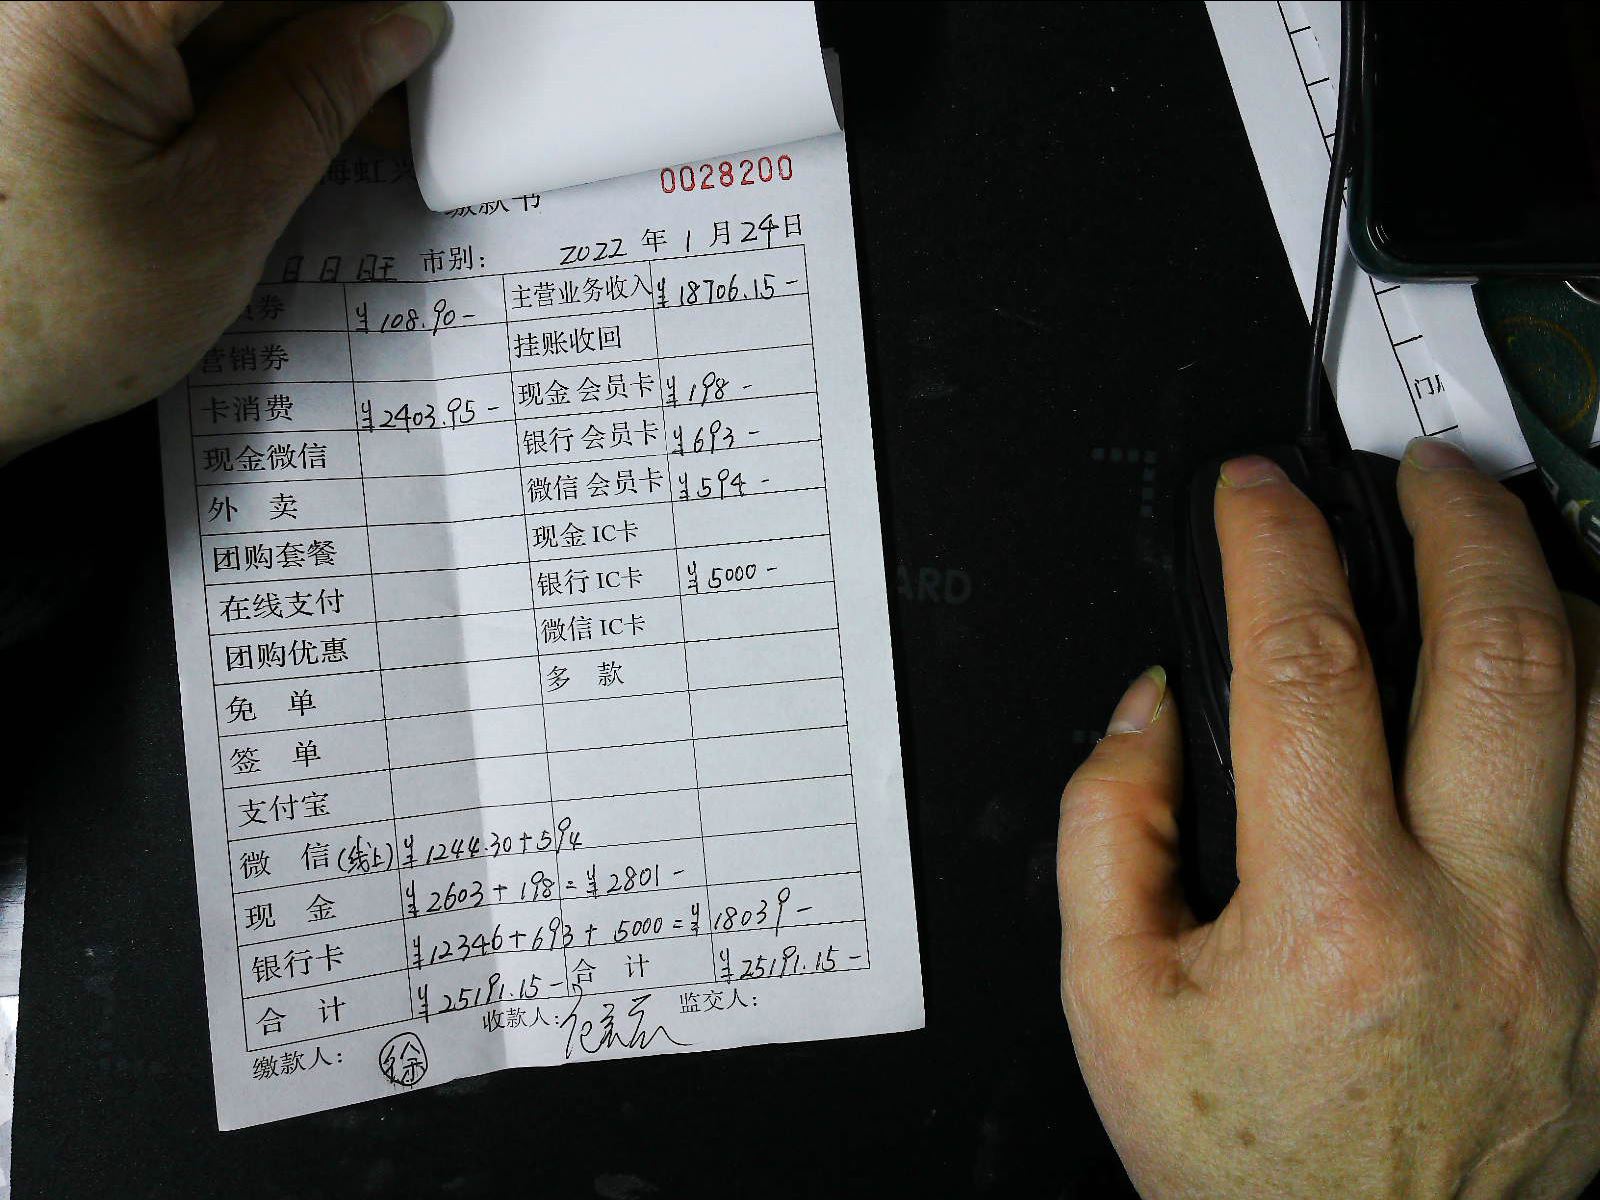 海虹兴
缴款书
0028200
市别: 2022 年 1 月 24 日
券 ¥108.90- 主营业务收入 ¥18706.15-
营销券 挂账收回
卡消费 ¥2403.95- 现金会员卡 ¥198-
现金微信 银行会员卡 ¥693-
外 卖 微信会员卡 ¥594-
团购套餐 现金IC卡
在线支付 银行IC卡 ¥5000-
团购优惠 微信IC卡
免 单 多 款
签 单
支付宝
微 信(线上) ¥1244.30+594
现 金 ¥2603+198=¥2801-
银行卡 ¥12346+693+5000=¥18039-
合 计 ¥25191.15- 合 计 ¥25191.15-
缴款人: 徐 收款人: 监交人:
ARD
门